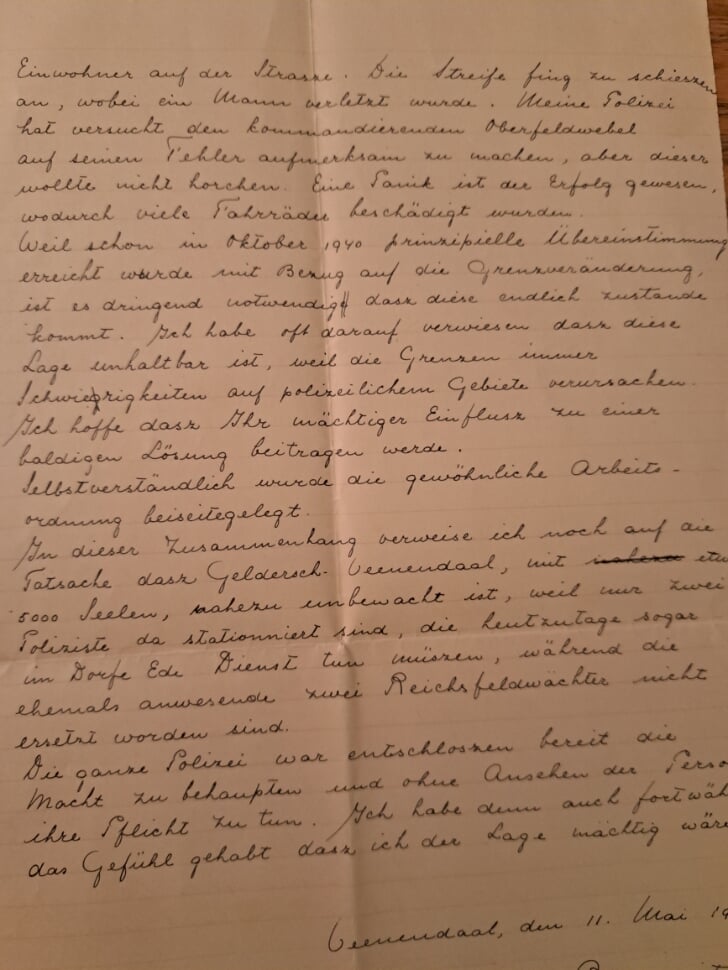 Einwohner auf der Strasze. Die Streife fing zu schieszen
an, wobei ein Mann verletzt wurde. Meine Polizei
hat versucht den kommandierenden Oberfeldwebel
auf seinen Fehler aufmerksam zu machen, aber dieser
wollte nicht horchen. Eine Panik ist der Erfolg gewesen,
wodurch viele Fahrräder beschädigt wurden.
Weil schon in Oktober 1940 prinzipielle Übereinstimmung
erreicht wurde mit Bezug auf die Grenzveränderung,
ist es dringend notwendig dasz diese endlich zustande
kommt. Ich habe oft darauf verwiesen dasz diese
Lage unhaltbar ist, weil die Grenzen immer
Schwierigkeiten auf polizeilichem Gebiete verursachen.
Ich hoffe dasz Ihr mächtiger Einflusz zu einer
baldigen Lösung beitragen werde.
Selbstverständlich wurde die gewöhnliche Arbeits-
ordnung beiseitegelegt.
In dieser Zusammenhang verweise ich noch auf die
Tatsache dasz Geldersch-Veenendaal, mit nahezu etw
5000 Seelen, nahezu unbewacht ist, weil nur zwei
Poliziste da stationniert sind, die heutzutage sogar
im Dorfe Ede Dienst tun müszen, während die
ehemals anwesende zwei Reichsfeldwächter nicht
ersetzt worden sind.
Die ganze Polizei war entschloszen bereit die
Macht zu behaupten und ohne Ansehen der Perso
ihre Pflicht zu tun. Ich habe denn auch fortwäh
das Gefühl gehabt dasz ich der Lage mächtig wäre
Veenendaal, den 11. Mai 19